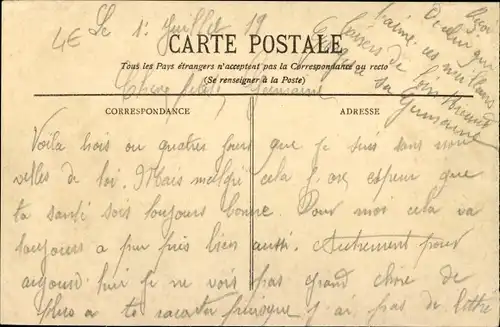 4E Le 1 Juillet 19
CARTE POSTALE
Tous les Pays étrangers n'acceptent pas la Correspondance au recto
(Se renseigner à la Poste)
Chère petite Germaine
CORRESPONDANCE
ADRESSE
Voilà trois ou quatre jours que je suis sans nou
velles de toi. Mais malgré cela j'ose espérer que
ta santé sois toujours bonne Pour moi cela va
toujours a peu près bien aussi. Autrement pour
aujourd'hui je ne vois pas grand chose de
plus a te raconter puisque j'ai pas de lettre
qui
t'aime ses meilleurs
baisers de
sa
Germaine